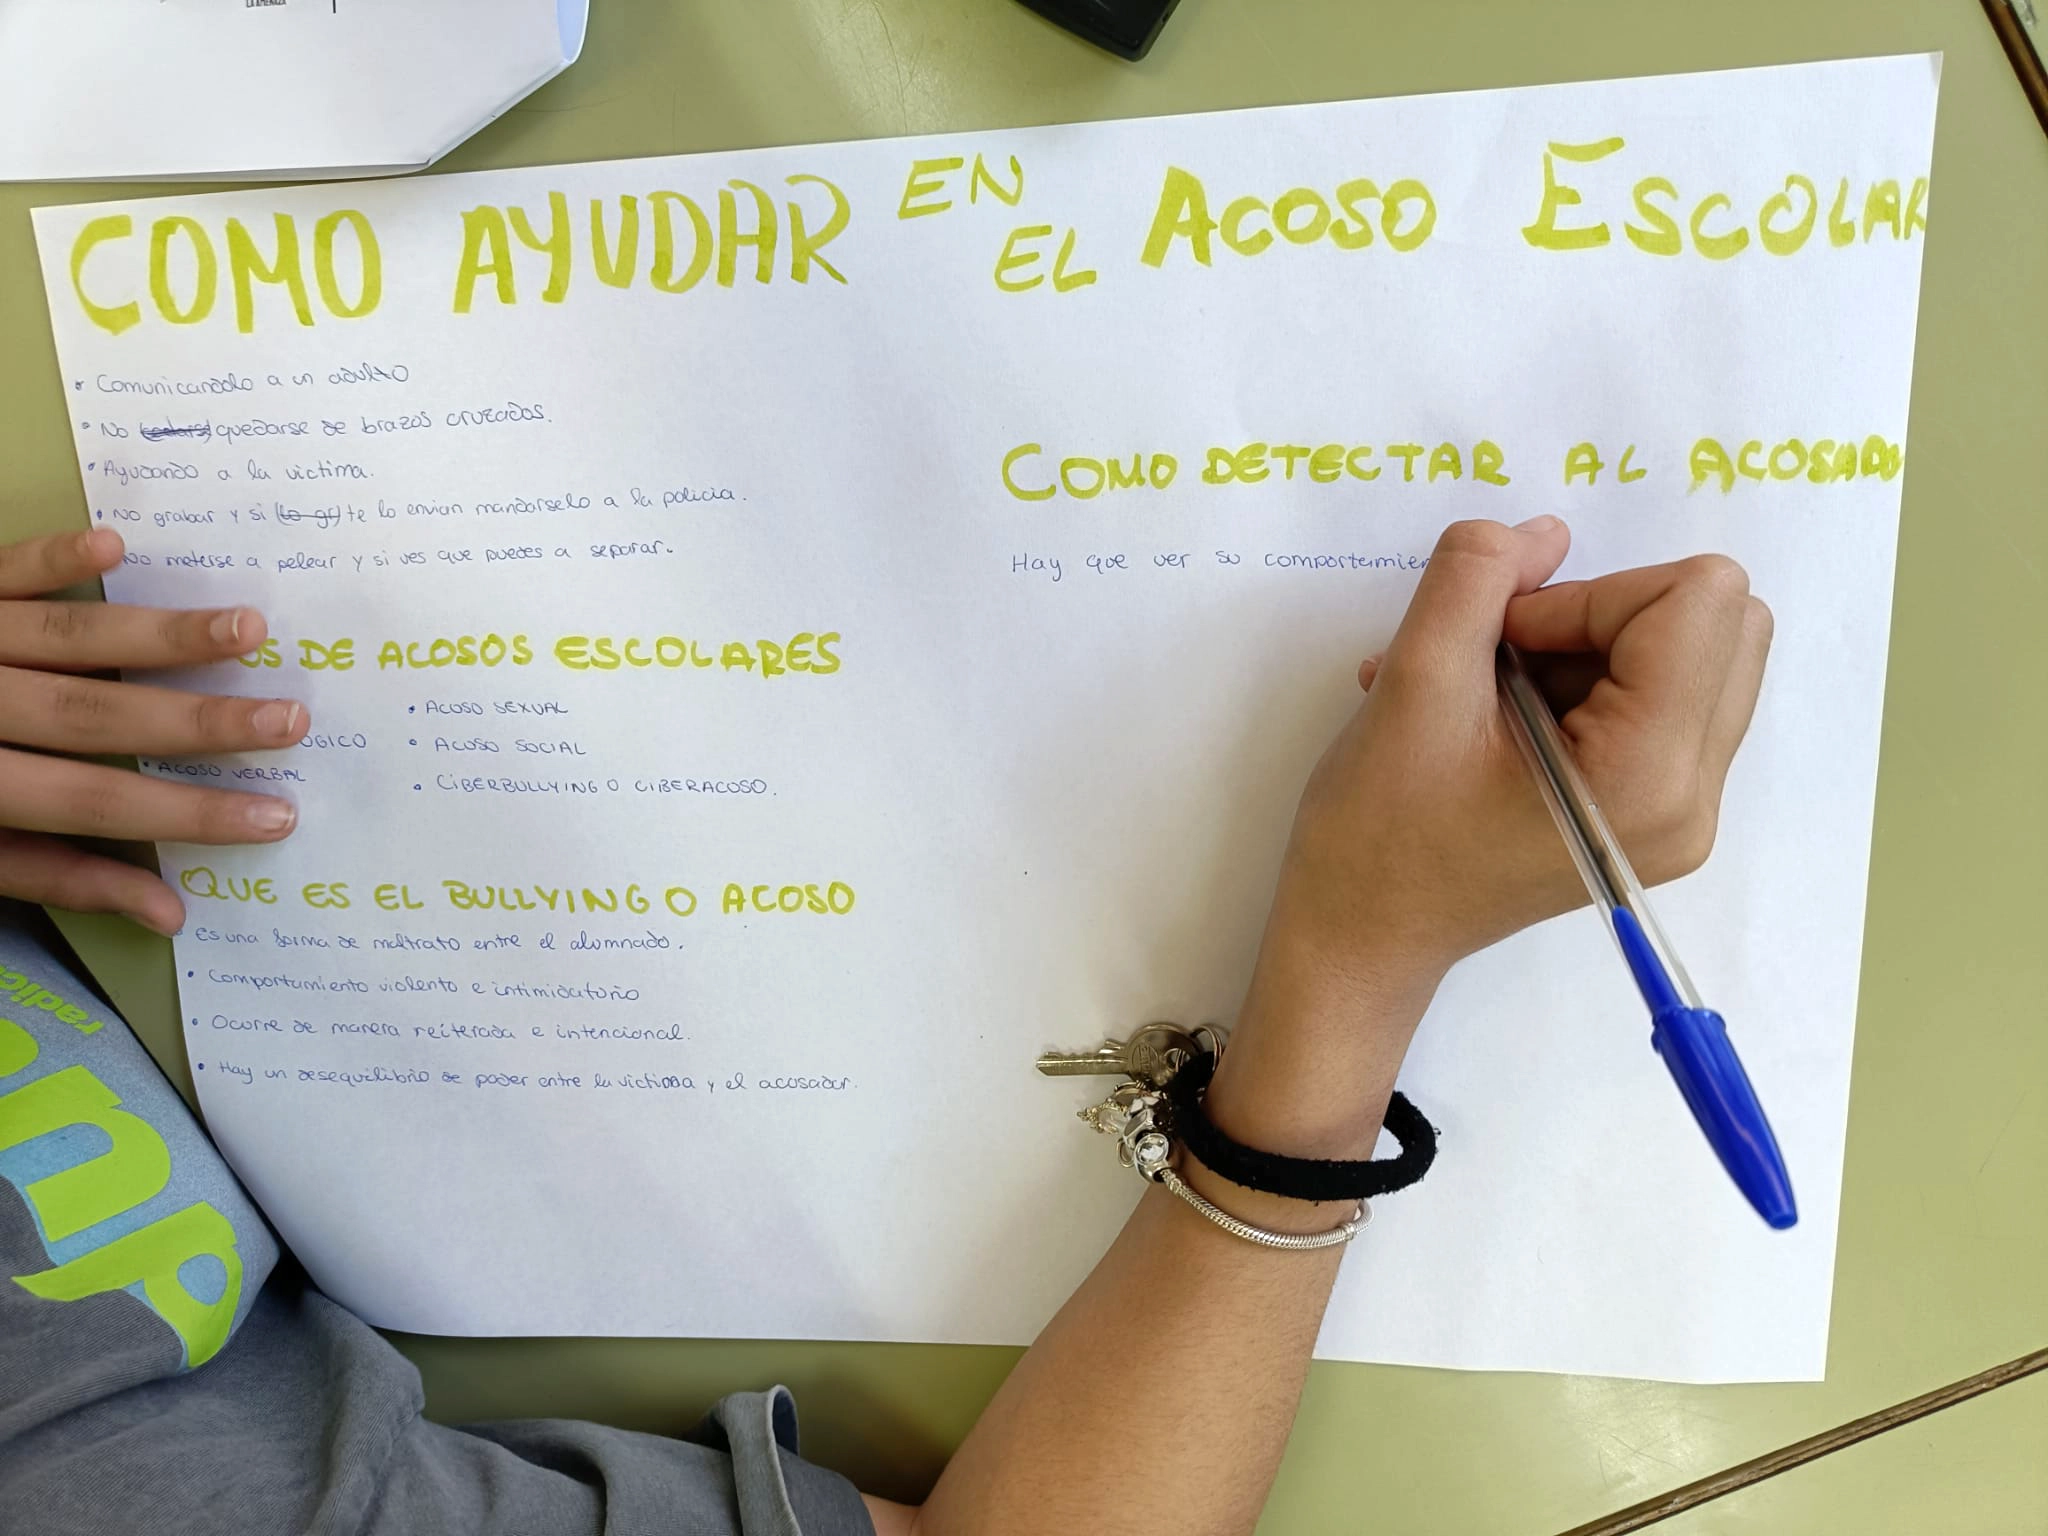 LA AMENAZA
COMO AYUDAR EN EL ACOSO ESCOLAR
• Comunicandolo a un adulto
• No quedarse de brazos cruzados.
• Ayudando a la victima.
• No grabar y si te lo envian mandarselo a la policia.
No meterse a pelear y si ves que puedes a separar.
OS DE ACOSOS ESCOLARES
OGICO
• ACOSO VERBAL
• ACOSO SEXUAL
• ACOSO SOCIAL
• CIBERBULLYING O CIBERACOSO.
QUE ES EL BULLYING O ACOSO
• Es una forma de maltrato entre el alumnado.
• Comportamiento violento e intimidatorio
• Ocurre de manera reiterada e intencional.
• Hay un desequilibrio de poder entre la victima y el acosador.
COMO DETECTAR AL ACOSADO
Hay que ver su comportamien
radic